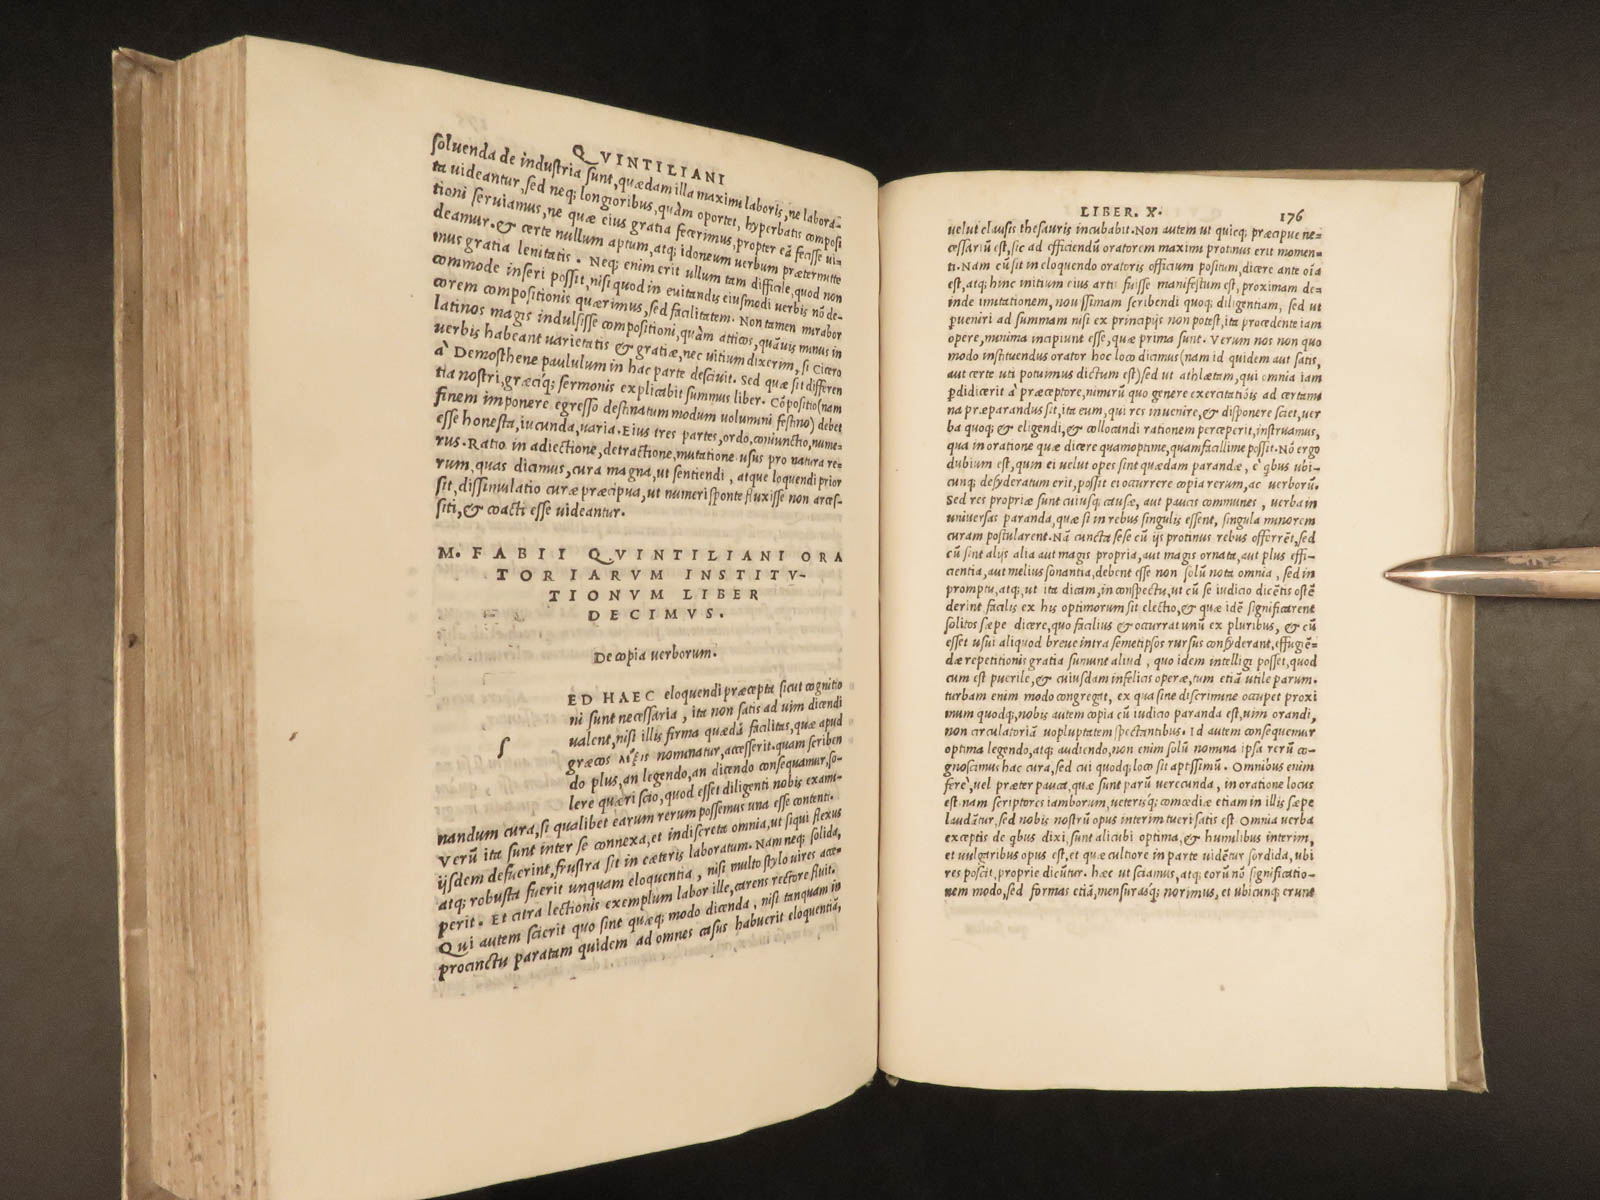 QVINTILIANI
soluenda de industria sunt, quædam illa maximi laboris, ne labora-
ta uideantur, sed neq; longioribus, quàm oportet, hyperbatis composi
tioni seruiamus, ne quæ eius gratia fecerimus, propter eã fecisse ui-
deamur. & certe nullum aptum, atq; idoneum uerbum prætermitta
mus gratia lenitatis. Neq; enim erit ullum tam difficile, quod non
commode inseri possit, nisi quod in euitandis eiusmodi uerbis nõ de-
corem compositionis quærimus, sed facilitatem. Non tamen mirabor
latinos magis indulsisse compositioni, quàm atticos, quãuis minus in
uerbis habeant uarietatis & gratiæ, nec uitium dixerim, si Cicero
à Demosthene paululum in hac parte desciuit. Sed quæ sit differen
tia nostri, græciq; sermonis explicabit summus liber. Cõpositio (nam
finem imponere egresso destinatum modum uolumini festino) debet
esse honesta, iucunda, uaria. Eius tres partes, ordo, coniunctio, nume-
rus. Ratio in adiectione, detractione, mutatione usus pro natura re-
rum, quas dicimus, cura magna, ut sentiendi, atque loquendi prior
sit, dissimulatio curæ præcipua, ut numeri sponte fluxisse non arces-
siti, & coacti esse uideantur.
M. FABII QVINTILIANI ORA
TORIARVM INSTITV-
TIONVM LIBER
DECIMVS.
De copia uerborum.
s ED HAEC eloquendi præcepta sicut cognitio
ni sunt necessaria, ita non satis ad uim dicendi
ualent, nisi illis firma quædã facilitas, quæ apud
græcos ἕξις nominatur, accesserit. quam scriben
do plus, an legendo, an dicendo consequamur, so-
lere quæri scio, quod esset diligenti nobis exami-
nandum cura, si qualibet earum rerum possemus una esse contenti.
Verũ ita sunt inter se connexa, et indiscreta omnia, ut siqui flexus
ijsdem defuerint, frustra sit in cæteris laboratum. Nam neq; solida,
atq; robusta fuerit unquam eloquentia, nisi multo stylo uires acce-
perit. Et citra lectionis exemplum labor ille, carens rectore fluit.
Qui autem scierit quo sint quæq; modo dicenda, nisi tanquam in
procinctu paratam quidem ad omnes casus habuerit eloquentiã,
LIBER. X. 176
uelut clausis thesauris incubabit. Non autem ut quicq; præcipue ne-
cessariũ est, sic ad efficiendũ oratorem maximi protinus erit momen-
ti. Nam cũ sit in eloquendo oratoris officium positum, dicere ante oĩa
est, atq; hinc initium eius arti fuisse manifestum est, proximam de-
inde imitationem, nouissimam scribendi quoq; diligentiam, sed ut
ꝑueniri ad summam nisi ex principijs non potest, ita procedente iam
opere, minima incipiunt esse, quæ prima sunt. Verum nos non quo
modo instituendus orator hoc loco dicimus (nam id quidem aut satis,
aut certe uti potuimus dictum est) sed ut athlætam, qui omnia iam
ꝑdidicerit à præceptore, nimirũ quo genere exercitatiõis ad certami
na præparandus sit, ita eum, qui res inuenire, & disponere sciet, uer
ba quoq; & eligendi, & collocandi rationem perceperit, instruamus,
qua in oratione quæ dicere quamoptime, quamfacillime possit. Nõ ergo
dubium est, quin ei uelut opes sint quædam parandæ, è q̃bus ubi-
cunq; desyderatum erit, possit ei occurrere copia rerum, ac uerborũ.
Sed res propriæ sunt cuiusq; causæ, aut paucis communes, uerba in
uniuersas paranda, quæ si in rebus singulis essent, singula minorem
curam postularent. Nã cuncta sese cũ ijs protinus rebus offerrẽt, sed
cũ sint alijs alia aut magis propria, aut magis ornata, aut plus effi-
cientia, aut melius sonantia, debent esse non solũ nota omnia, sed in
promptu, atq; ut ita dicam, in conspectu, ut cũ se iudicio dicẽtis ostẽ
derint facilis ex his optimorum sit electio, & quæ idẽ significarent
solitos sæpe dicere, quo facilius & occurrat unũ ex pluribus, & cũ
esset usui aliquod breue intra semetipsos rursus consyderant, effugiẽ-
dæ repetitionis gratia sumunt aliud, quo idem intelligi posset, quod
cum est puerile, & cuiusdam infelicis operæ, tum etiã utile parum.
turbam enim modo congregat, ex qua sine discrimine occupet proxi
mum quodq;, nobis autem copia cũ iudicio paranda est, uim orandi,
non circulatoriã uoluptatem spectantibus. id autem consequemur
optima legendo, atq; audiendo, non enim solũ nomina ipsa rerũ co-
gnoscimus hac cura, sed cui quodq; loco sit aptissimũ. Omnibus enim
ferè, uel præter pauca, quæ sunt parũ uerecunda, in oratione locus
est. nam scriptores iamborum, ueterisq; comœdiæ etiam in illis sæpe
laudãtur, sed nobis nostrũ opus interim tueri satis est. Omnia uerba
exceptis de q̃bus dixi, sunt alicubi optima, & humilibus interim,
et uulgaribus opus est, et quæ cultiore in parte uidẽtur sordida, ubi
res poscit, proprie dicũtur. hæc ut sciamus, atq; eorũ nõ significatio-
nem modo, sed formas etiã, mensurasq; norimus, et ubicunq; erunt